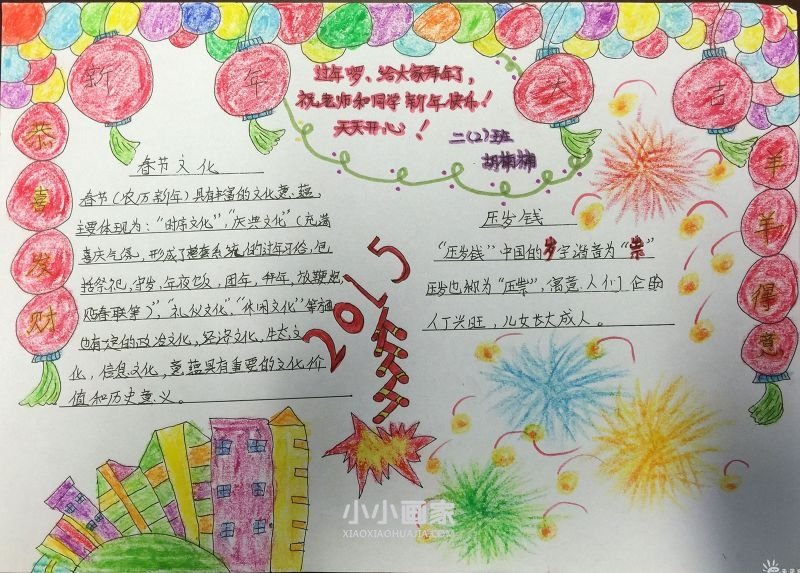 新年大吉
过年啰、给大家拜年了,
祝老师和同学新年快乐!
天天开心!
二(2)班
恭喜发财
春节文化
春节(农历新年)具有丰富的文化意蕴
主要体现为:“时序文化”,“庆典文化”(充满
喜庆气氛,形成了整套系统的过年习俗,包
括祭祀,守岁,年夜饭,团年,拜年,放鞭炮,
贴春联等)”,“礼仪文化”,“休闲文化”等
也有的政治文化,经济文化,生态文
化,信息文化,意蕴具有重要的文化价
值和历史意义。
2015
压岁钱
“压岁钱”中国的岁字谐音为“祟”
压岁也称为“压祟”,寓意人们企盼
人丁兴旺,儿女长大成人。
羊羊得意
小小画家
XIAOXIAOHUAJIA.COM